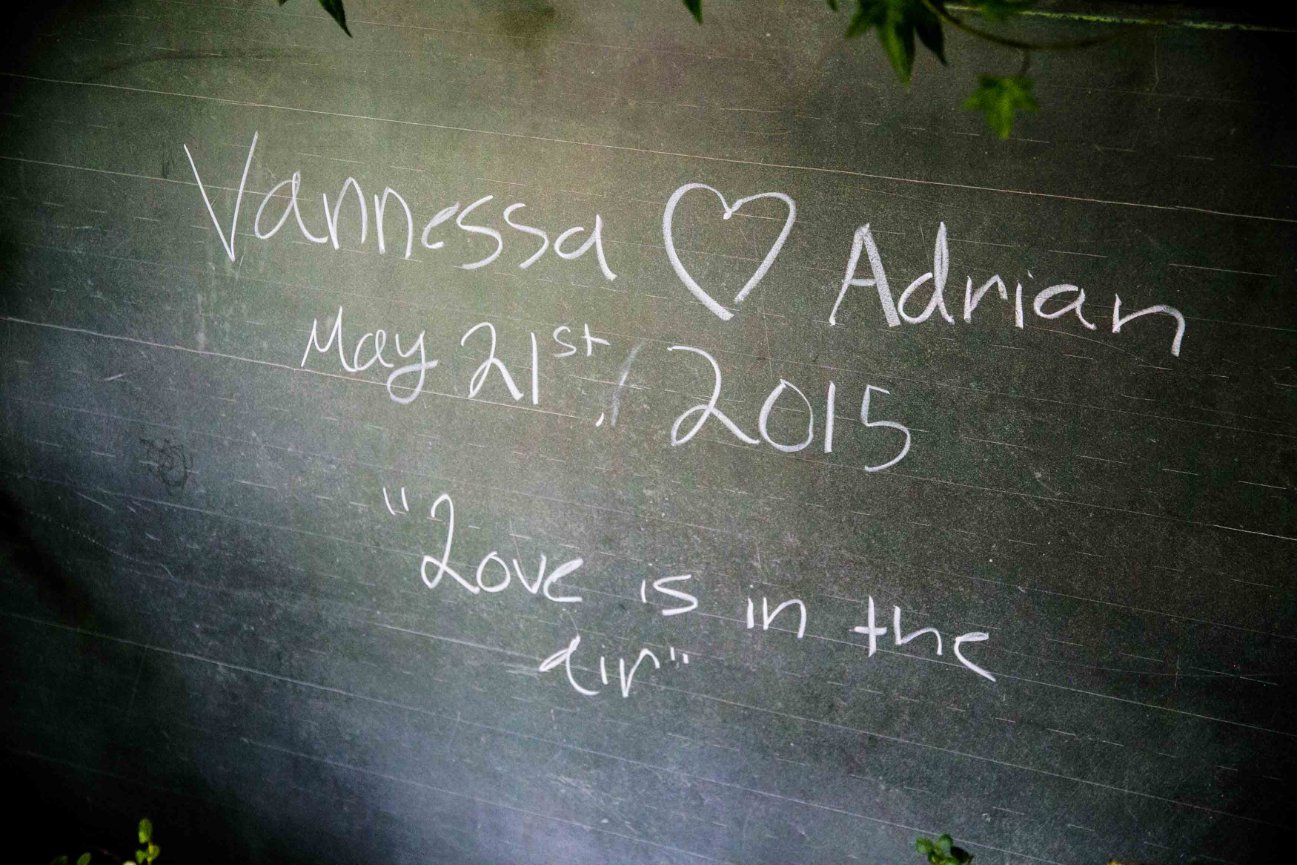 Vannessa ♡ Adrian
May 21st, 2015
"Love is in the
air"